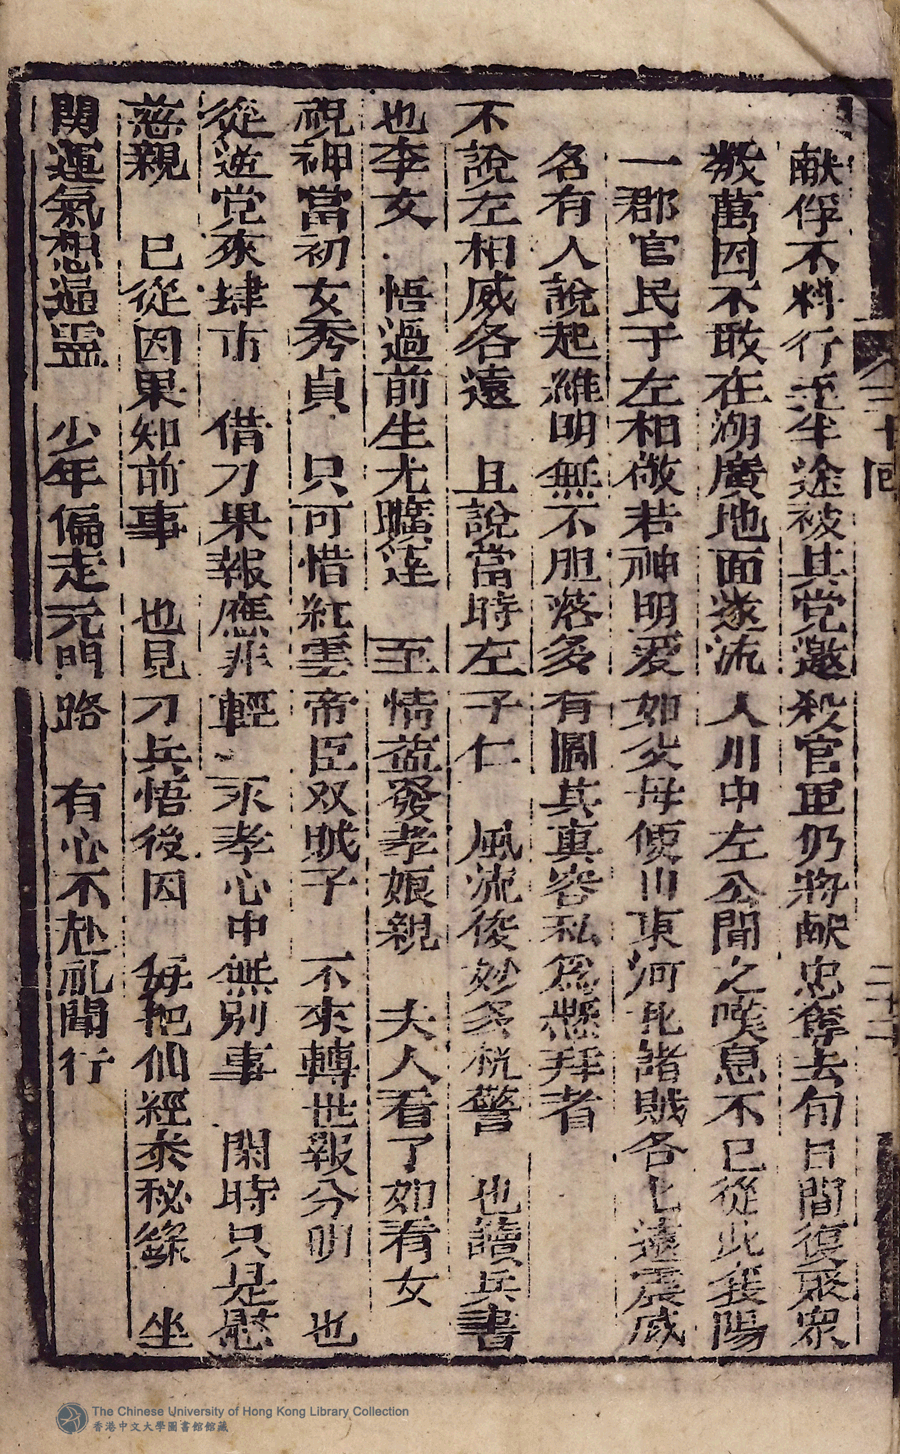 献俘不料行至半途被其党邀殺官軍仍將献忠奪去旬日間復聚眾
数萬因不敢在湖廣地面遂流入川中左公聞之嘆息不已從此襄陽
一郡官民于左相敬若神明愛如父母便川東河北諸賊各七遠震威
名有人說起維明無不胆落多有圖其真容私爲懸拜者
不說左相威名遠　且說當時左子仁　風流俊妙多梲警　也讀兵書
也李女　悟過前生尤曠達　至情益發孝娘親　夫人看了如看女
視神當初女秀貞　只可惜紅雲帝臣双賊子　不來轉世報分明　也
從逆党來肆市　借刀果報應非輕　永孝心中無別事　閑時只是慰
慈親　已從因果知前事　也見刀兵悟後因　每把仙經参秘籙　坐
関運氣想遍靈　少年偏走元門路　有心不赴乱聞行
卷三十回
二十二
The Chinese University of Hong Kong Library Collection
香港中文大學圖書館館藏